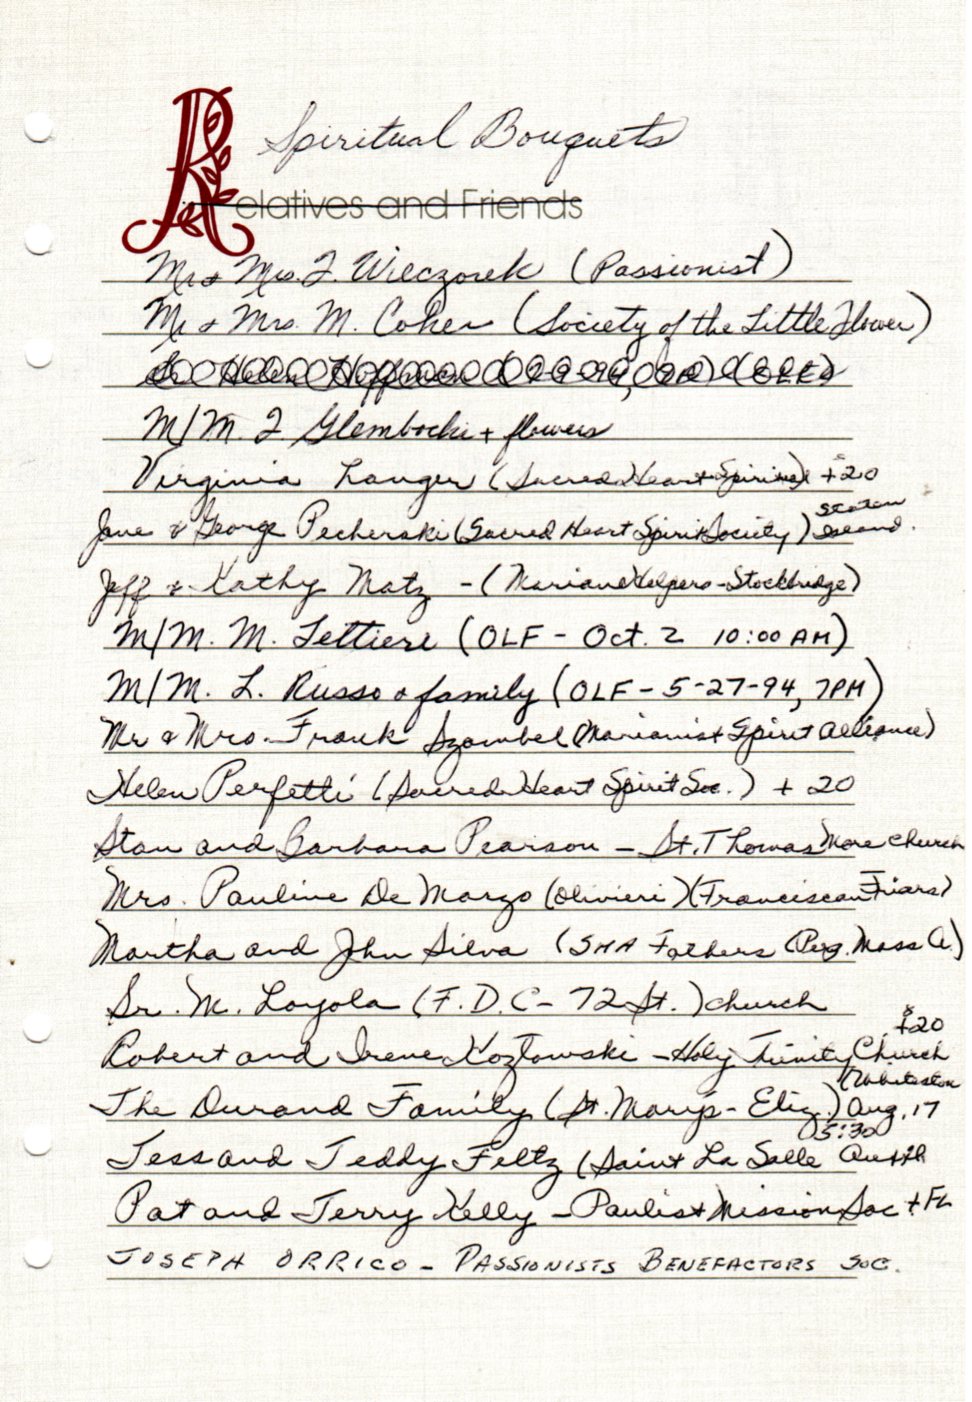 Spiritual Bouquets
Relatives and Friends
Mr + Mrs. J. Wilczorek (Passionist)
Mr + Mrs. M. Cohen (Society of the Little Flower)
Helen Hoffman
M/M. J Glembocki + flowers
Virginia Langer (Sacred Heart Spiritual) + $20
Jane & George Pecherski (Sacred Heart Spirit Society) Staten Island.
Jeff & Kathy Matz - (Marian Helpers - Stockbridge)
M/M. M. Lettieri (OLF - Oct. 2 10:00 AM)
M/M. L. Russo & family (OLF - 5-27-94, 7PM)
Mr & Mrs. Frank Szombel (Marianist Spirit Alliance)
Helen Perfetti (Sacred Heart Spirit Soc.) + 20
Stan and Barbara Pearson - St. Thomas More Church
Mrs. Pauline De Marzo (Olivieri) (Franciscan Friars)
Martha and John Silva (SMA Fathers Perp. Mass A.)
Sr. M. Loyola (F.D.C - 72 St.) church
Robert and Irene Kozlowski - Holy Trinity Church + $20
(Whiteston
The Durand Family (St. Mary's - Eliz.) Aug. 17
5:30
Jess and Teddy Feltz (Saint La Salle
Pat and Jerry Kelly - Paulist Mission Soc + FL
JOSEPH ORRICO - PASSIONISTS BENEFACTORS SOC.